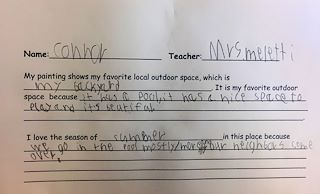 Name: connor Teacher: Mrs meletti
My painting shows my favorite local outdoor space, which is
my backyard. It is my favorite outdoor
space because it has a pool, it has a nice space to
play and its beutiful.
I love the season of summer in this place because
we go in the pool mostly our neighbors come
over.